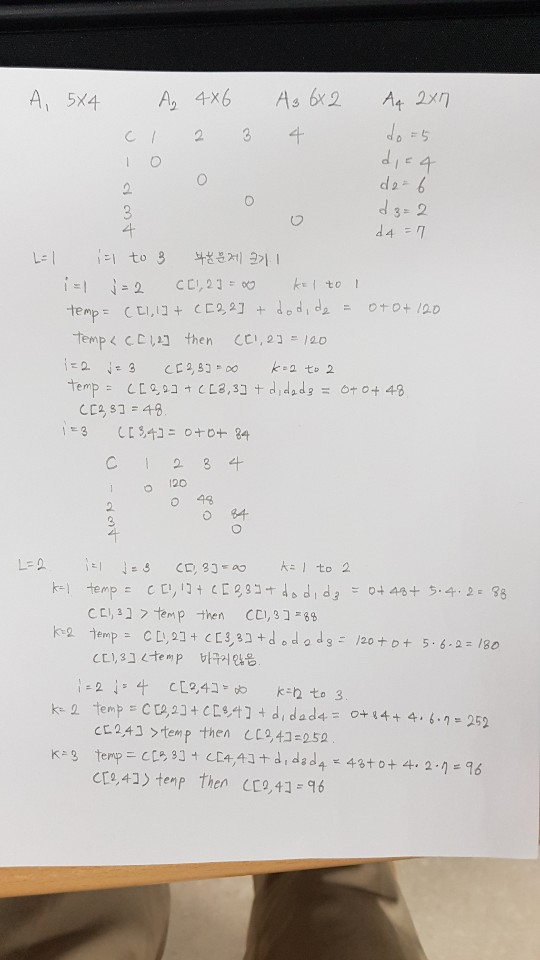 A₁ 5×4 A₂ 4×6 A₃ 6×2 A₄ 2×7
C 1 2 3 4 d₀ = 5
1 0 d₁ = 4
2 0 d₂ = 6
3 0 d₃ = 2
4 0 d₄ = 7
L=1 i=1 to 3 부분문제 크기 1
i=1 j=2 C[1,2]=∞ k=1 to 1
temp = C[1,1] + C[2,2] + d₀d₁d₂ = 0+0+120
temp < C[1,2] then C[1,2] = 120
i=2 j=3 C[2,3]=∞ k=2 to 2
temp = C[2,2] + C[3,3] + d₁d₂d₃ = 0+0+48
C[2,3] = 48.
i=3 C[3,4] = 0+0+ 84
C 1 2 3 4
1 0 120
2 0 48
3 0 84
4 0
L=2 i=1 j=3 C[1,3]=∞ k=1 to 2
k=1 temp = C[1,1] + C[2,3] + d₀d₁d₃ = 0+48+ 5·4·2 = 88
C[1,3] > temp then C[1,3] = 88
k=2 temp = C[1,2] + C[3,3] + d₀d₂d₃ = 120+0+ 5·6·2 = 180
C[1,3] < temp 바꾸지않음.
i=2 j=4 C[2,4]=∞ k=2 to 3.
k=2 temp = C[2,2] + C[3,4] + d₁d₂d₄ = 0+84+ 4·6·7 = 252
C[2,4] > temp then C[2,4]=252.
k=3 temp = C[2,3] + C[4,4] + d₁d₃d₄ = 48+0+ 4·2·7 = 96
C[2,4] > temp then C[2,4] = 96